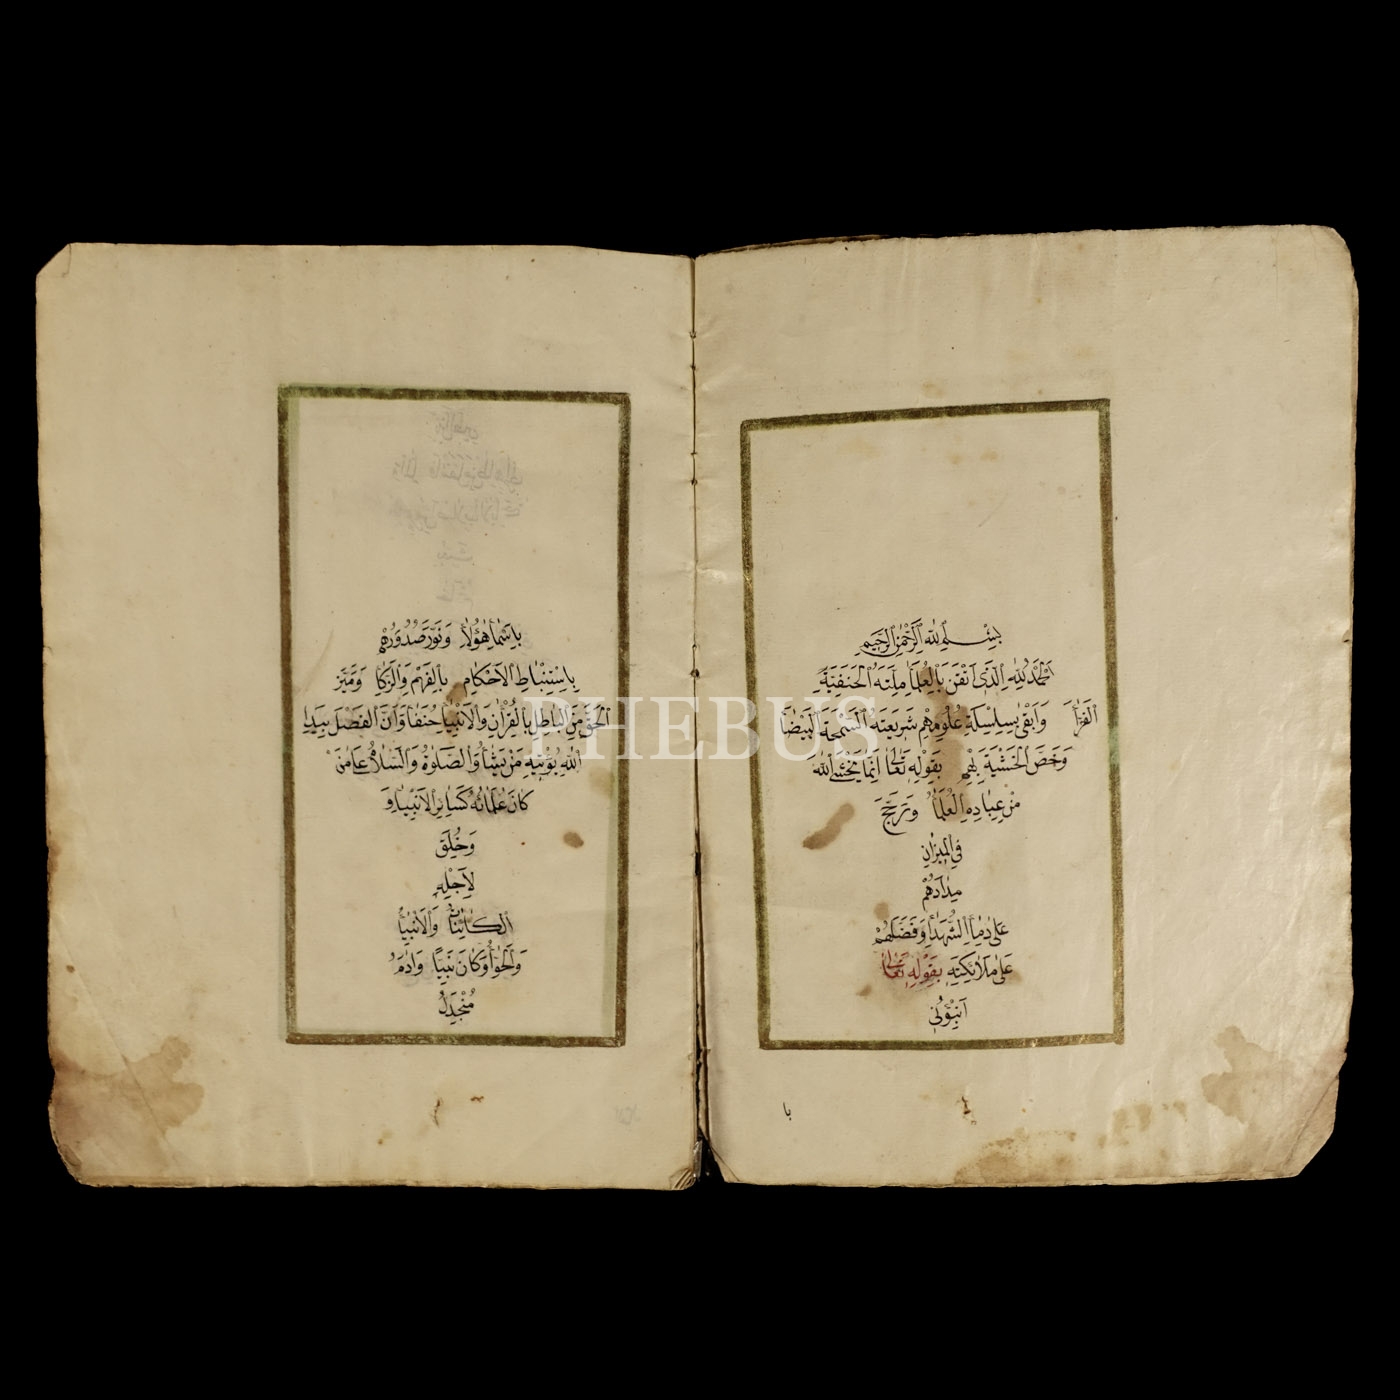 بِسْمِ اللهِ الرَّحْمٰنِ الرَّحِيمِ
اَلْحَمْدُ لِلهِ الَّذِى اَتْقَنَ بِالْعُلَمَاءِ مِلَّتَهُ الْحَنَفِيَّةَ
الْغَرَّاءَ وَاَبْقٰى بِسِلْسِلَةِ عُلُومِهِمْ شَرِيعَتَهُ السَّمْحَةَ الْبَيْضَاءَ
وَخَصَّ الْخَشْيَةَ بِهِمْ بِقَوْلِهِ تَعَالٰى اِنَّمَا يَخْشَى اللهَ
مِنْ عِبَادِهِ الْعُلَمَاءُ وَتَرَجَّحَ
فِى الْمِيزَانِ
مِدَادَهُمْ
عَلٰى دِمَاءِ الشُّهَدَاءِ وَفَضَّلَهُمْ
عَلٰى مَلَائِكَتِهِ بِقَوْلِهِ تَعَالٰى
اَنْبِؤُنِى
با
بِاَسْمَاءِ هٰؤُلَاءِ وَنَوَّرَ صُدُورَهُمْ
بِاِسْتِنْبَاطِ الْاَحْكَامِ بِالْفَهْمِ وَالزَّكَاءِ وَمَيَّزَ
الْحَقَّ مِنَ الْبَاطِلِ بِالْقُرْاٰنِ وَالْاَنْبِيَاءِ حُنَفَاءَ وَاَنَّ الْفَضْلَ بِيَدِ
اللهِ يُؤْتِيهِ مَنْ يَشَاءُ وَالصَّلٰوةُ وَالسَّلَامُ عَلٰى مَنْ
كَانَ عُلَمَائُهُ كَسَائِرِ الْاَنْبِيَاءِ وَ
وَخُلِقَ
لِاَجْلِهِ
الْكَائِنَاتُ وَالْاَنْبِيَاءُ
وَالْحَوَّاءُ وَكَانَ نَبِيًّا وَاٰدَمُ
مُنْجَدِلٌ
PHEBUS